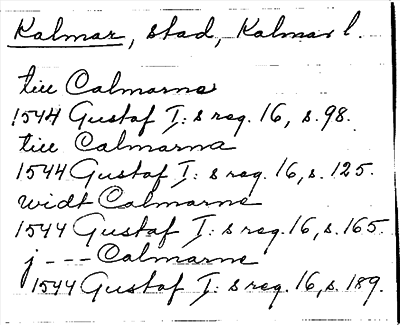 Kalmar, stad, Kalmar l.
till Calmarne
1544 Gustaf I:s reg. 16, s. 98.
till Calmarna
1544 Gustaf I:s reg. 16, s. 125.
widt Calmarne
1544 Gustaf I:s reg. 16, s. 165.
j --- Calmarne
1544 Gustaf I:s reg. 16, s. 189.